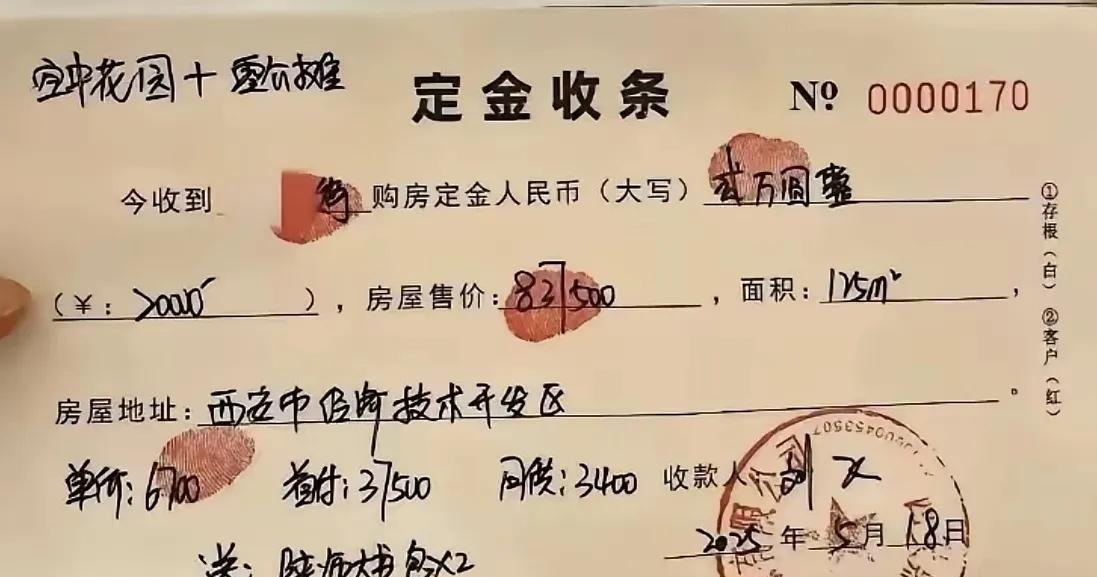 空中花园+零公摊
定金收条 Nº 0000170
今收到 购房定金人民币（大写）贰万圆整
（￥：20000 ），房屋售价：837500，面积：125m²，
房屋地址：西安市高新技术开发区。
单价：6700 首付：37500 月供：3400 收款人
2025年5月18日
送：陕师大 X2
①存根（白）②客户（红）